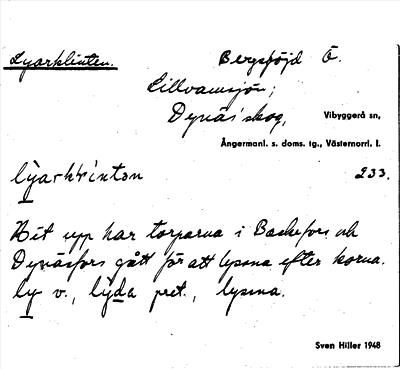 Lyarklinten. Bergshöjd Ö.
Lillvamsjön;
Dynäs skog, Vibyggerå sn,
Ångermanl. s. doms. tg., Västernorrl. l.
lyarkḷinten 233.
Hit upp har torparna i Baskefors och
Dynäsfors gått för att lyssna efter korna.
ly v., lyda pret., lyssna.
Sven Hiller 1948